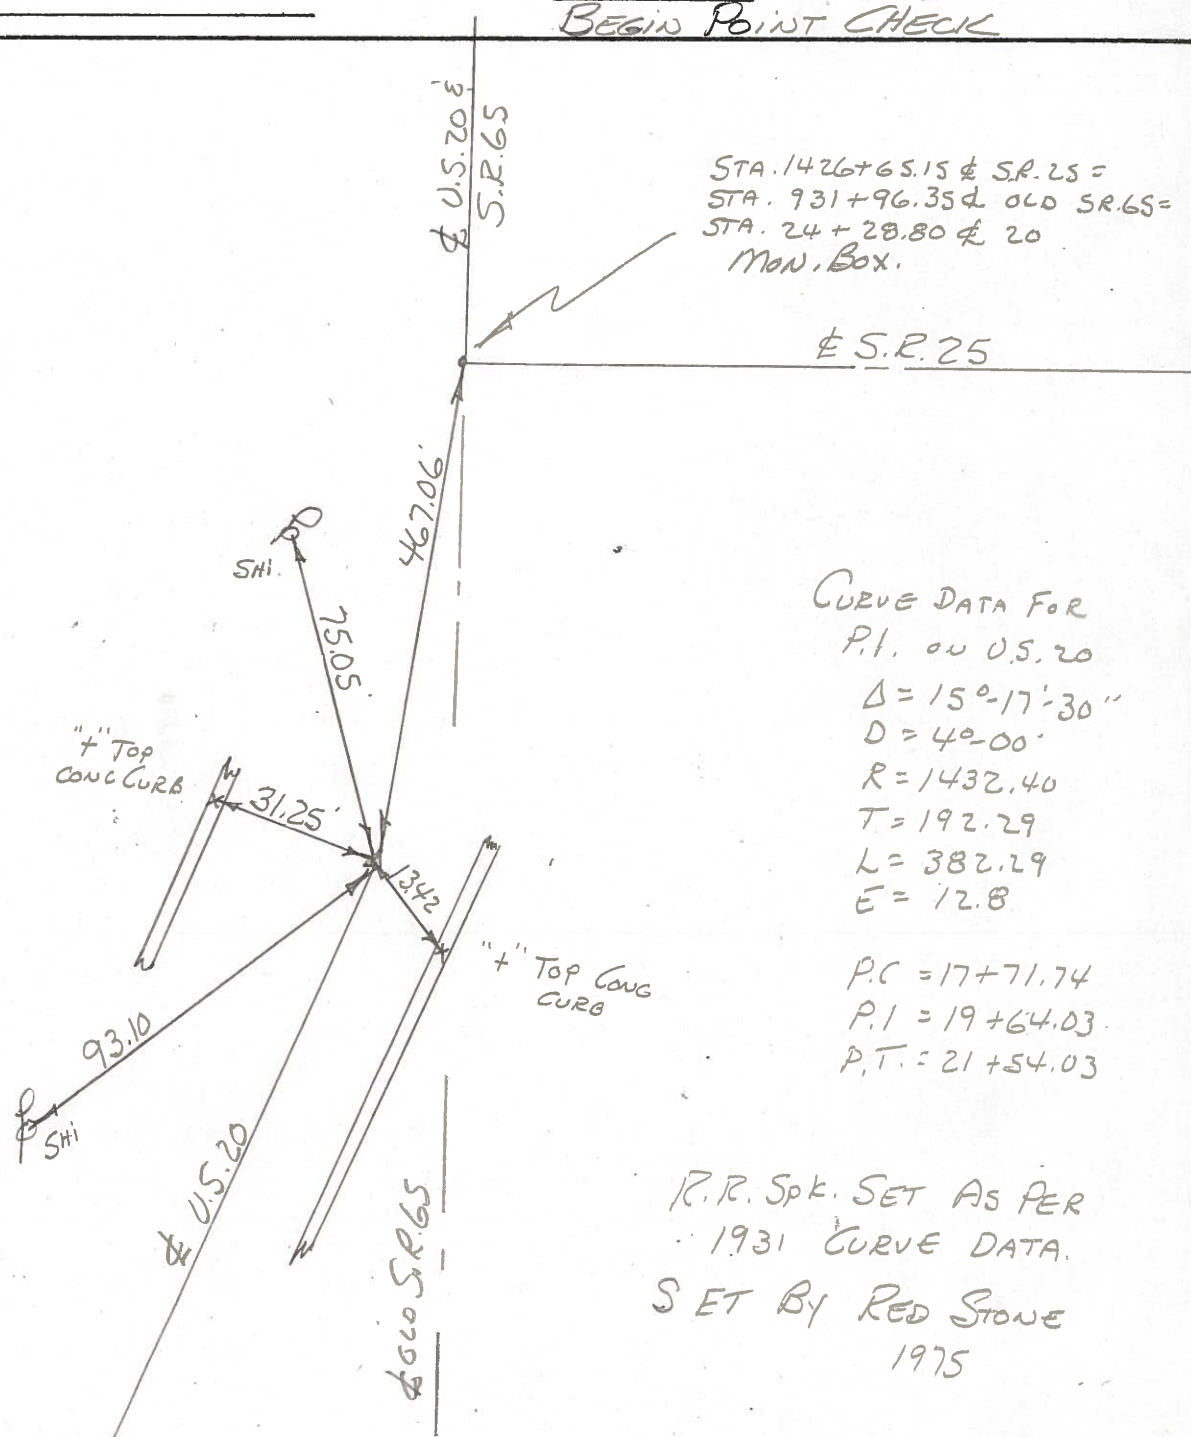 BEGIN POINT CHECK
℄ U.S. 20 &
S.R. 65
STA. 1426+65.15 ℄ S.R. 25 =
STA. 931+96.35 ℄ OLD SR.65=
STA. 24+28.80 ℄ 20
MON. BOX.
℄ S.R. 25
467.06'
SHI.
75.05'
"+" TOP
CONC CURB
31.25'
13.42
"+" TOP CONC
CURB
93.10
SHI
℄ U.S. 20
℄ OLD S.R. 65
CURVE DATA FOR
P.I. ON U.S. 20
Δ = 15°-17'-30"
D = 4°-00'
R = 1432.40
T = 192.29
L = 382.29
E = 12.8
P.C = 17+71.74
P.I = 19+64.03
P.T. = 21+54.03
R.R. SPK. SET AS PER
1931 CURVE DATA.
SET BY RED STONE
1975